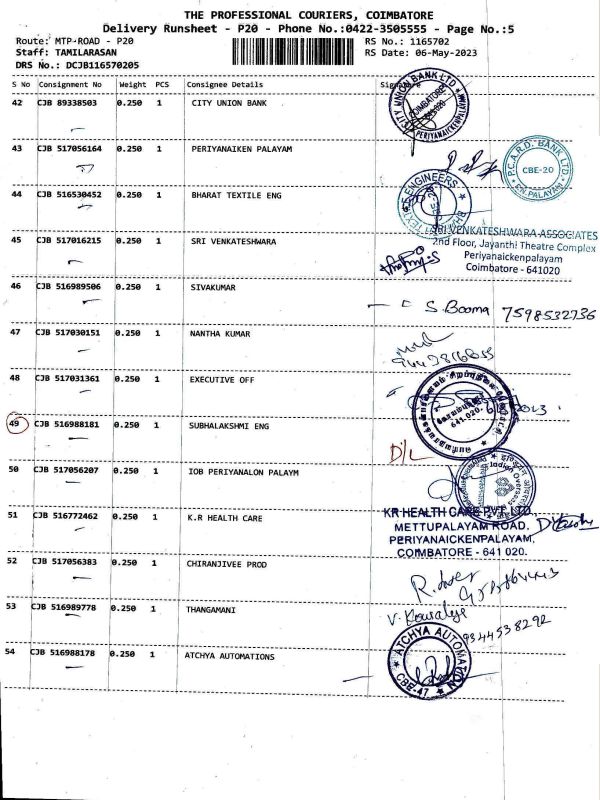 THE PROFESSIONAL COURIERS, COIMBATORE
Delivery Runsheet - P20 - Phone No.:0422-3505555 - Page No.:5
Route: MTP-ROAD - P20
RS No.: 1165702
Staff: TAMILARASAN
RS Date: 06-May-2023
DRS No.: DCJB116570205
S No Consignment No Weight PCS Consignee Details
42 CJB 89338503 0.250 1 CITY UNION BANK
CITY UNION BANK LTD
COIMBATORE
641020
PERIYANAICKENPALAYAM
43 CJB 517056164 0.250 1 PERIYANAIKEN PALAYAM
P.C.A.R.D. BANK LTD.
CBE-20
44 CJB 516530452 0.250 1 BHARAT TEXTILE ENG
ENGINEERS
45 CJB 517016215 0.250 1 SRI VENKATESHWARA
SRI VENKATESHWARA ASSOCIATES
2nd Floor, Jayanthi Theatre Complex
Periyanaickenpalayam
Coimbatore - 641020
46 CJB 516989506 0.250 1 SIVAKUMAR
S. Booma 7598532736
47 CJB 517030151 0.250 1 NANTHA KUMAR
48 CJB 517031361 0.250 1 EXECUTIVE OFF
641 020.
49 CJB 516988181 0.250 1 SUBHALAKSHMI ENG
D/L
50 CJB 517056207 0.250 1 IOB PERIYANALON PALAYM
Indian Overseas
51 CJB 516772462 0.250 1 K.R HEALTH CARE
KR HEALTH CARE PVT LTD.
METTUPALAYAM ROAD,
PERIYANAICKENPALAYAM,
COIMBATORE - 641 020.
52 CJB 517056383 0.250 1 CHIRANJIVEE PROD
53 CJB 516989778 0.250 1 THANGAMANI
V. Kowsalya
9344538292
54 CJB 516988178 0.250 1 ATCHYA AUTOMATIONS
ATCHYA AUTOMATION
CBE-47